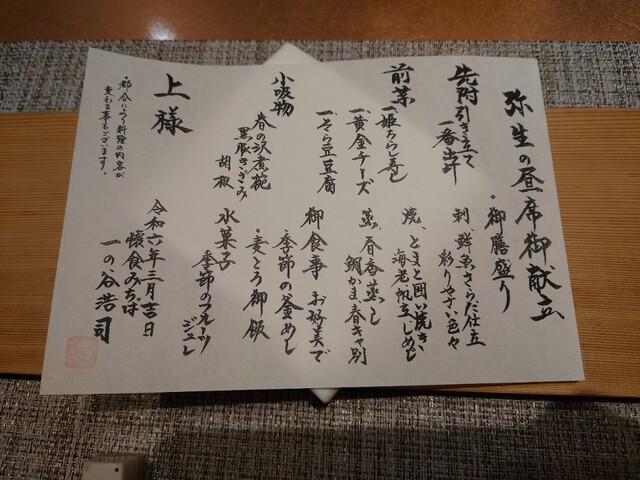 弥生の昼席御献立
先附 引き立て
一番出汁
前菜 一、姫ちらし寿し
一、黄金チーズ
一、そら豆豆腐
小吸物
春の沢煮椀
黒豚きざみ
胡椒
・御膳盛り
刺、鮮魚さらだ仕立
彩りやさい色々
焼、とまと田楽焼き
海老、帆立、しめじ
蒸、春香蒸し
鯛かま、春キャ別
御食事 お好みで
季節の釜めし
・麦とろ御飯
水菓子
季節のフルーツ
ジュレ
上様
・都合により料理の内容が
変わる事もございます。
令和六年三月吉日
懐食みちば
一の谷浩司